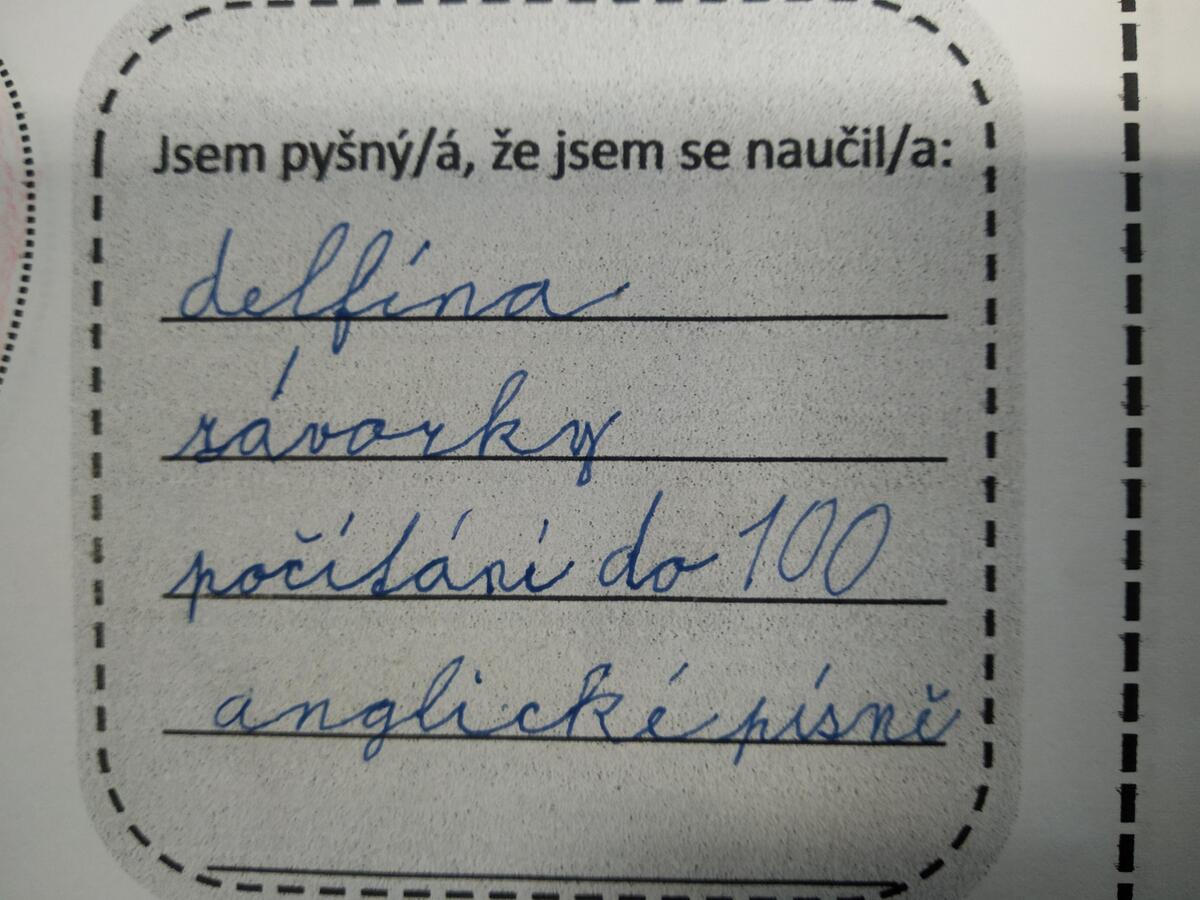 Jsem pyšný/á, že jsem se naučil/a:
delfína
závorky
počítání do 100
anglické písně